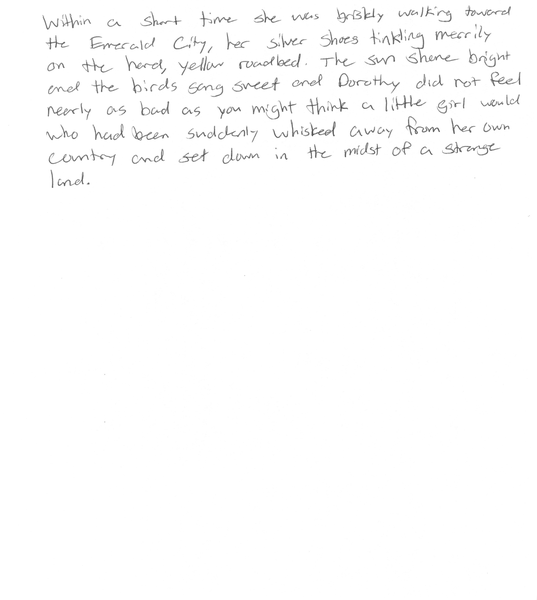 Within a short time she was briskly walking toward
the Emerald City, her silver shoes tinkling merrily
on the hard, yellow roadbed. The sun shone bright
and the birds sang sweet and Dorothy did not feel
nearly as bad as you might think a little girl would
who had been suddenly whisked away from her own
country and set down in the midst of a strange
land.